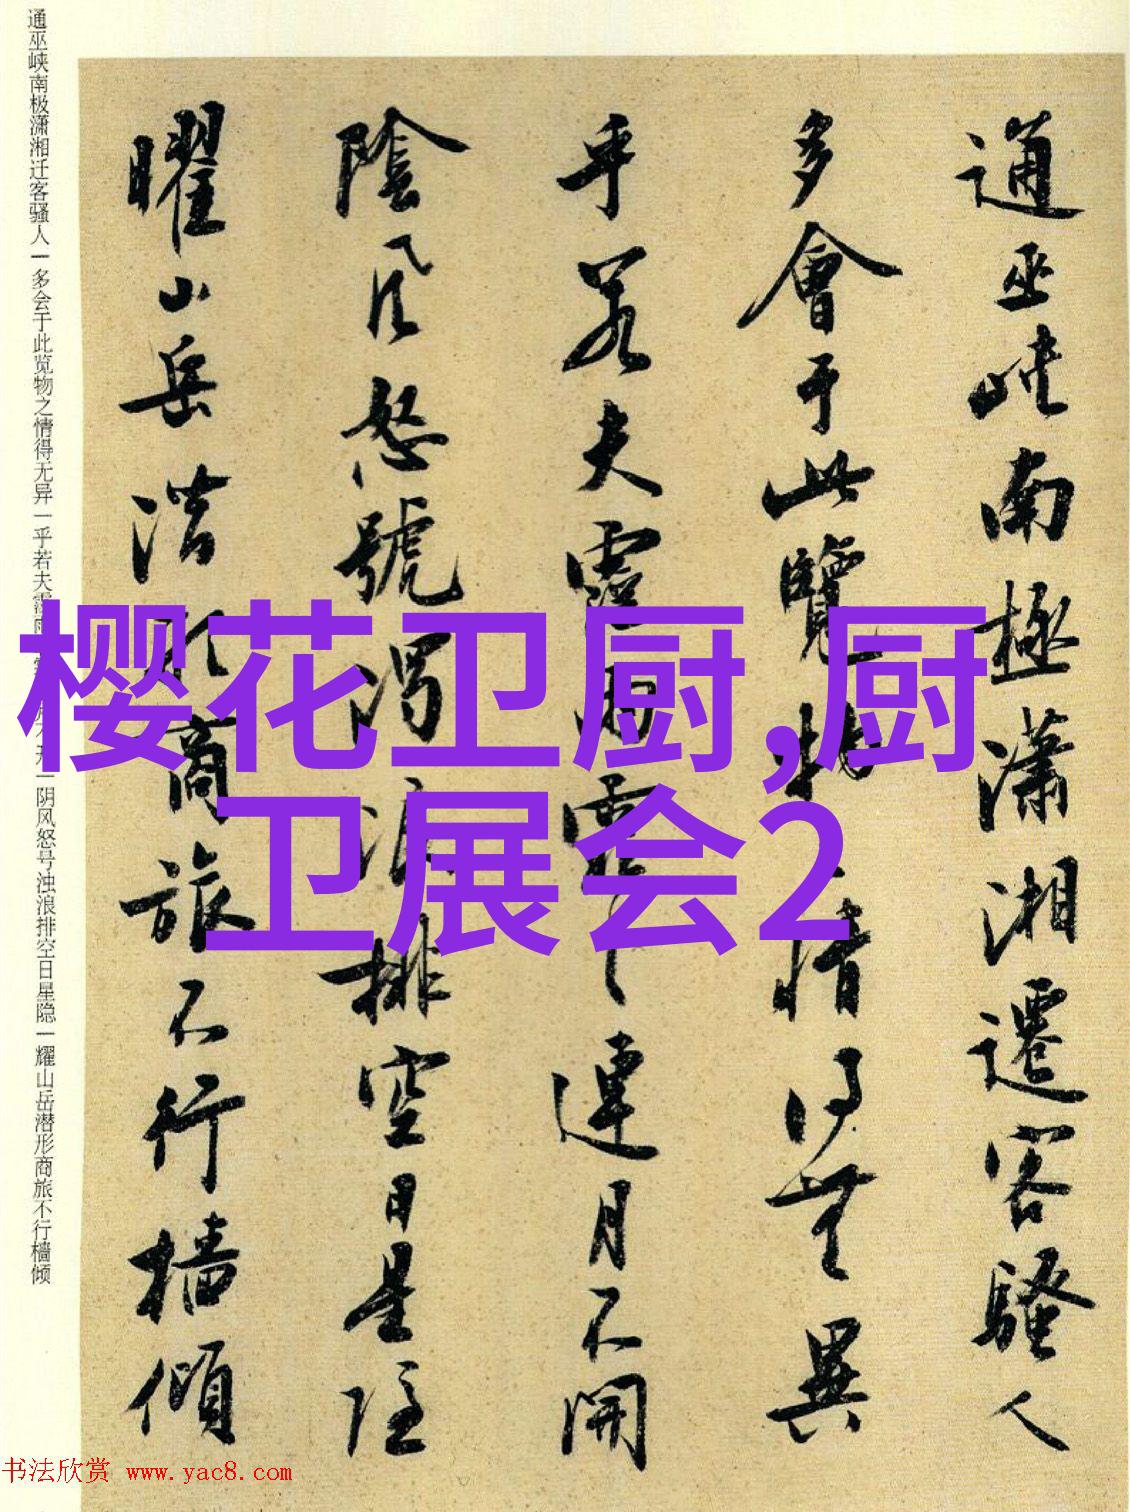 通巫峡南極瀟湘遷客騷人
多會于此覽物情得無異
乎若夫霪雨霏霏連月不開
陰風怒號濁浪排空日星隱
曜山岳潜形商旅不行檣傾
通巫峡南极潇湘迁客骚人一多会于此览物之情得无异一乎若夫霪雨
开一阴风怒号浊浪排空日星隐一耀山岳潜形商旅不行樯倾
樱花卫厨,厨
卫展会2
书法欣赏 www.yac8.com